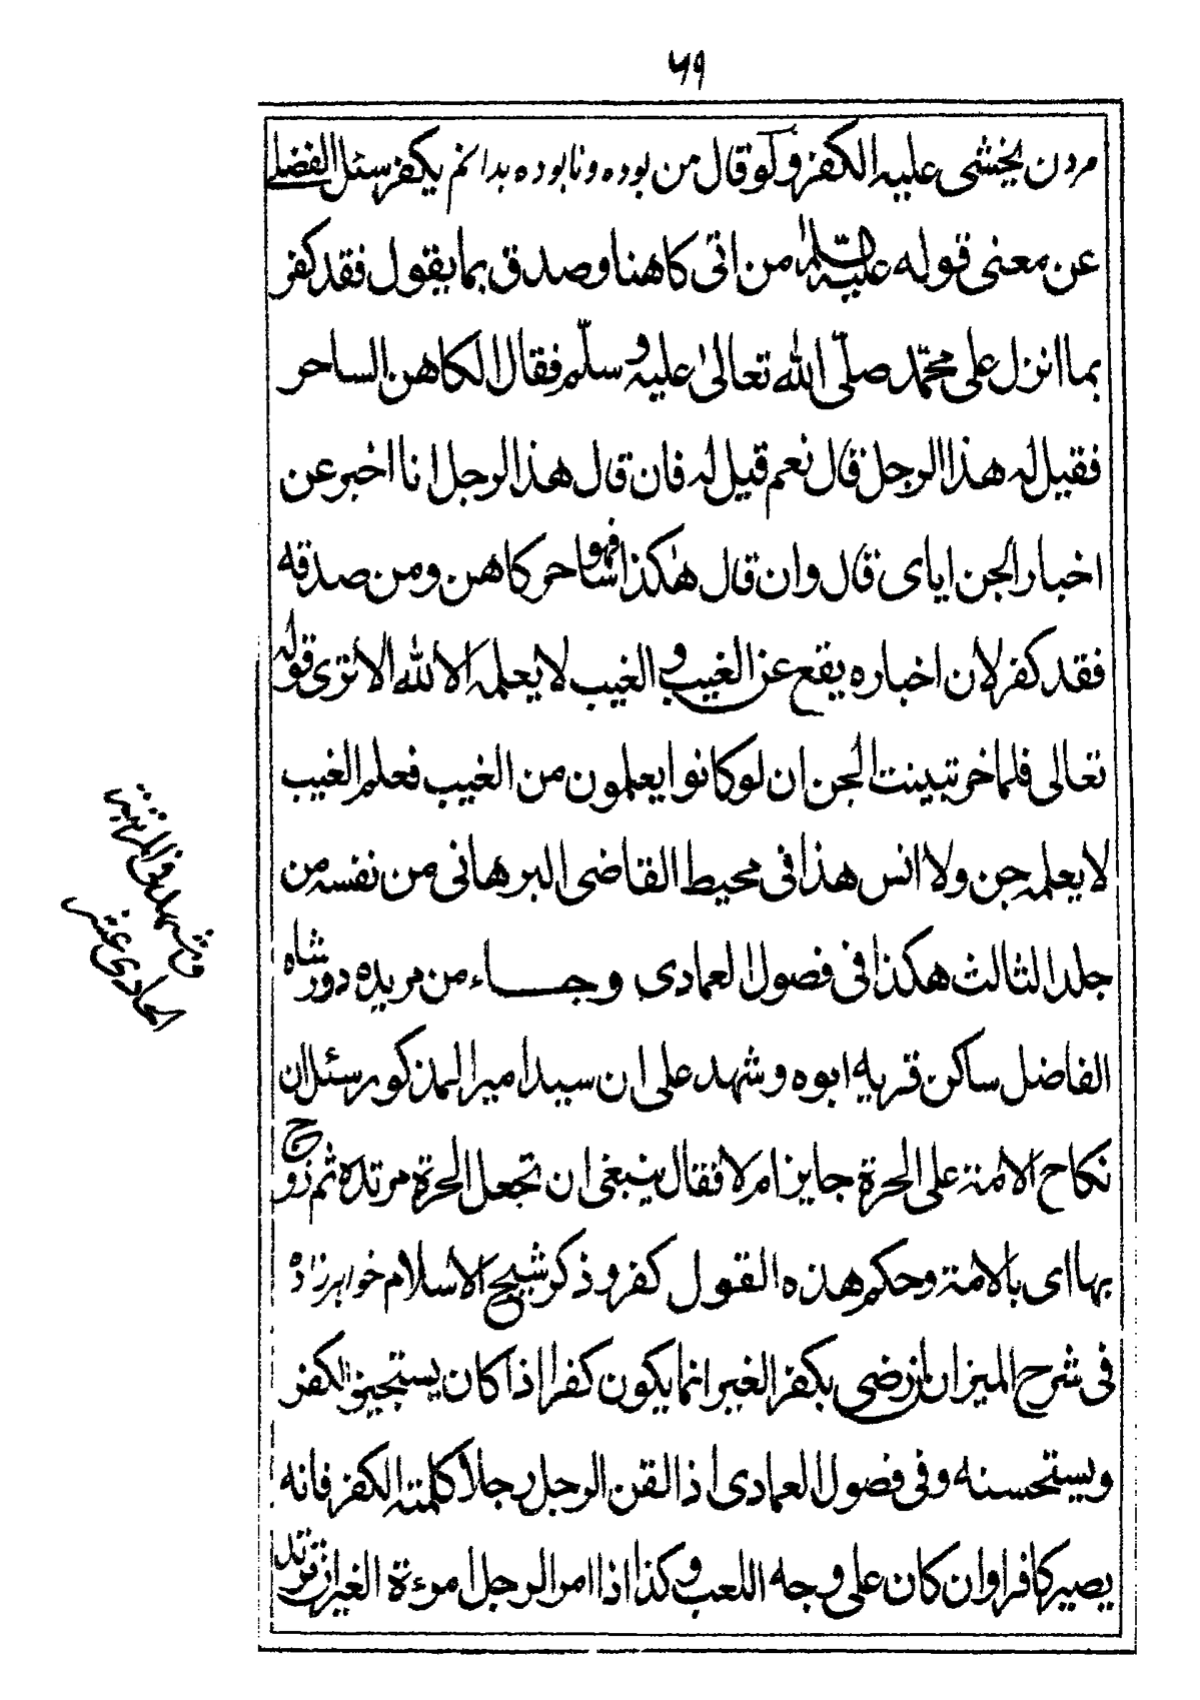 ۵۹
مردن يخشى عليه الكفر ولو قال من بوده ونابوده بدانم يكفر سئل الفضلى
عن معنى قوله عليه السّلام من اتى كاهنا وصدق بما يقول فقد كفر
بما انزل على محمّد صلّى اللّه تعالىٰ عليه وسلّم فقال الكاهن الساحر
فقيل له هذا الرجل قال نعم قيل له فان قال هذا الرجل انا اخبر عن
اخبار الجن اياى قال وان قال هٰكذا فهو ساحر كاهن ومن صدقه
فقد كفر لان اخباره يقع عن الغيب و الغيب لا يعلمه الا اللّه الا ترى قوله
تعالى فلما خر تبينت الجن ان لو كانوا يعلمون من الغيب فعلم الغيب
لا يعلمه جن ولا انس هذا فى محيط القاضى البرهانى من نفسه من
جلد الثالث هكذا فى فصول العمادى وجاء من مريده دور شاه
الفاضل ساكن قريه ابوه وشهد على ان سيد امير المذكور سئل ان
نكاح الامة على الحرة جايز ام لا فقال ينبغى ان تجعل الحرة مرتدة ثم زوج
بها اى بالامة وحكم هذه القول كفر وذكر شيخ الاسلام خواهرزاده
فى شرح الميزان ان رضى بكفر الغير انما يكون كفرا اذا كان يستجيز الكفر
ويستحسنه وفى فصول العمادى اذا لقن الرجل رجلا كلمة الكفر فانه
يصير كافرا وان كان على وجه اللعب وكذا اذا امر الرجل امرءة الغير ان ترتد